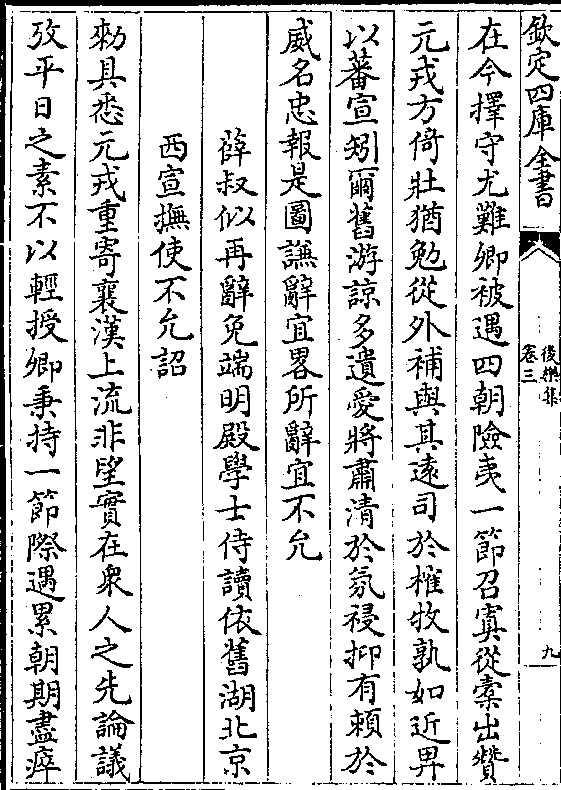 欽定四庫全書
後樂集
卷三
九
在今擇守尤難卿被遇四朝險夷一節召寘從槖出賛
元戎方倚壯猶勉從外補與其逺司於榷牧孰如近畀
以蕃宣矧爾舊游諒多遺愛將肅清於氛祲抑有頼於
威名忠報是圖謙辭宜畧所辭宜不允
薛叔似再辭免端明殿學士侍讀依舊湖北京
西宣撫使不允詔
勅具悉元戎重寄襄漢上流非望實在衆人之先論議
攷平日之素不以輕授卿秉持一節際遇累朝期盡瘁